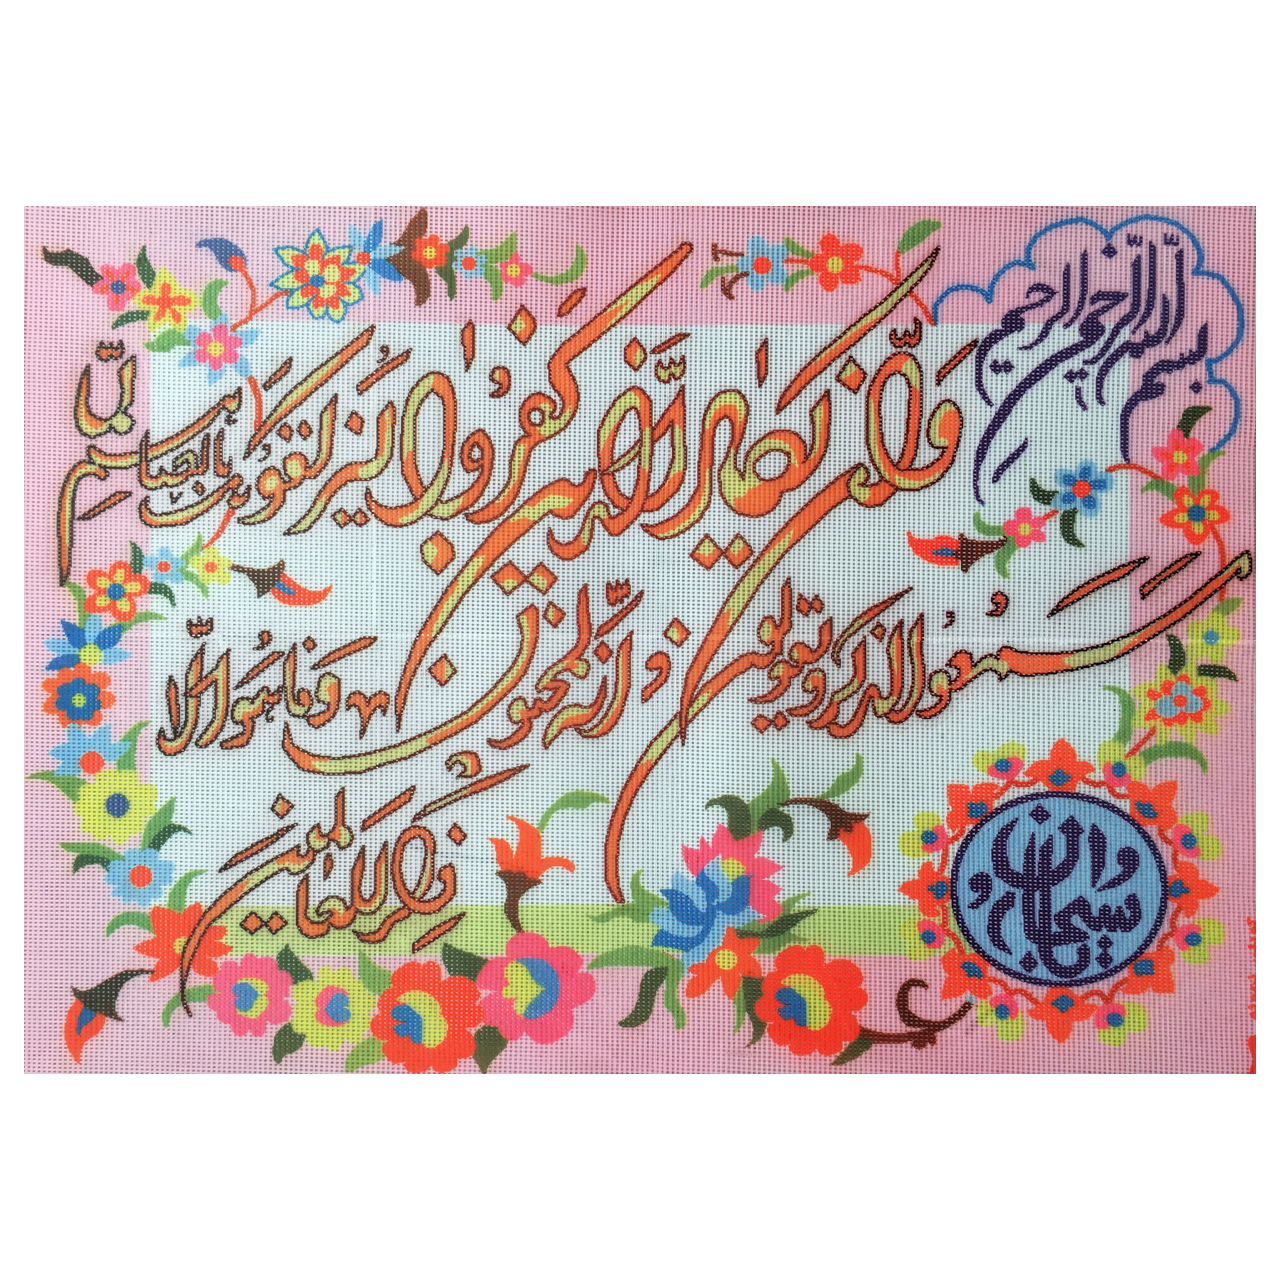 بسم الله الرحمن الرحیم
وان یکاد الذین کفروا لیزلقونک بابصارهم لما
سمعوا الذکر و یقولون انه لمجنون و ما هو الا
ذکر للعالمین